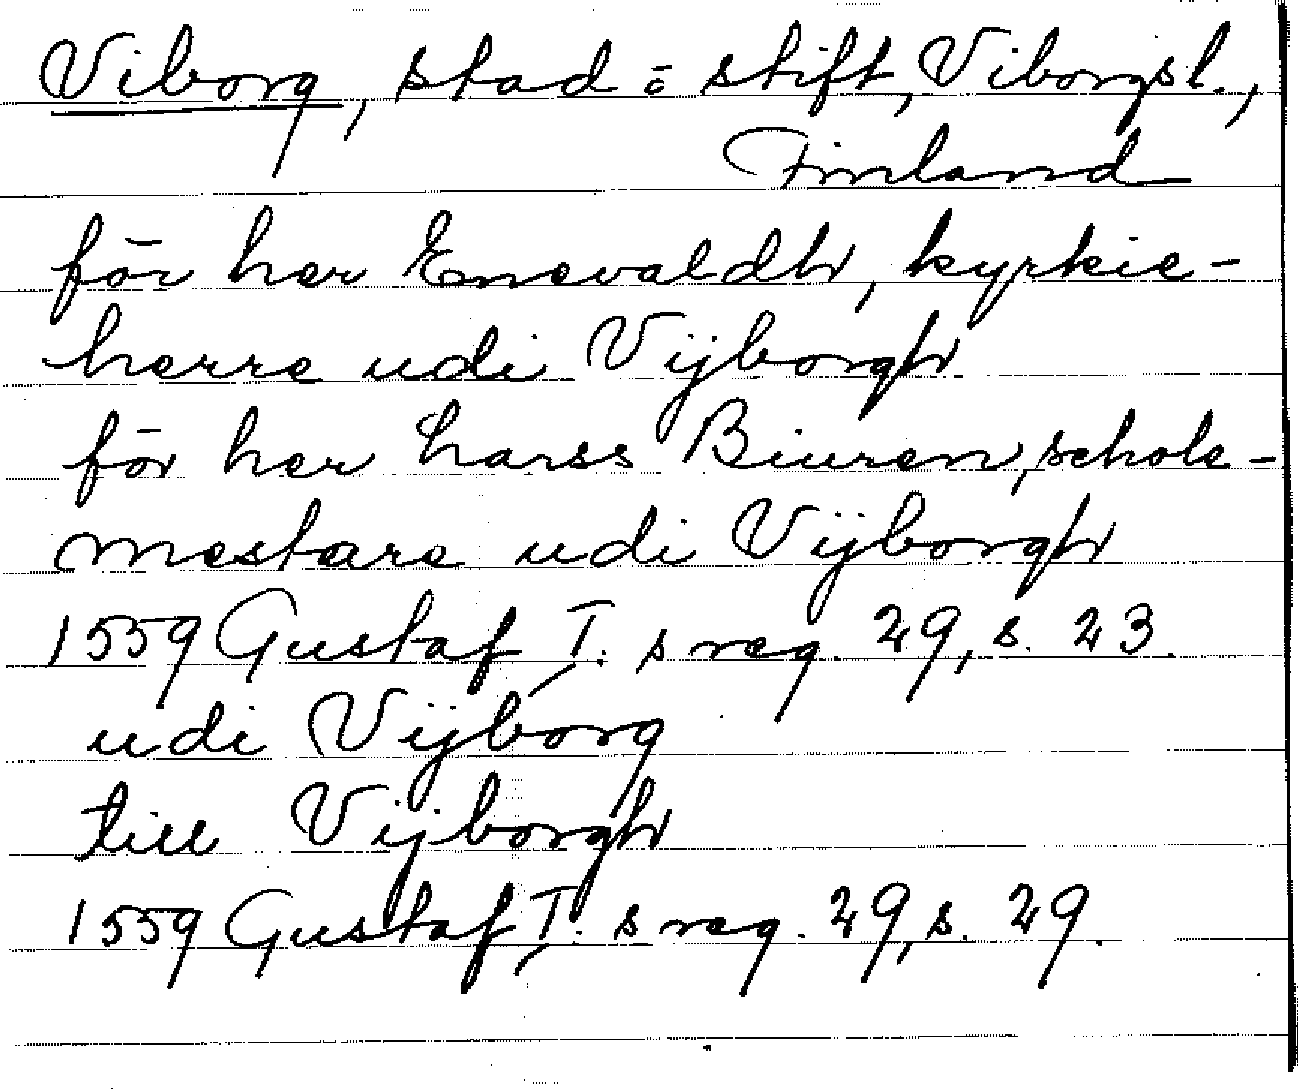 Viborg, stad o stift, Viborgsl.,
Finland
för her Enevaldh, kyrkie-
herre udi Vijborgh
för her Larss Biuren, schole-
mestare udi Vijborgh
1559 Gustaf I:s reg. 29, s. 23.
udi Vijborg
till Vijborgh
1559 Gustaf I:s reg. 29, s. 29.